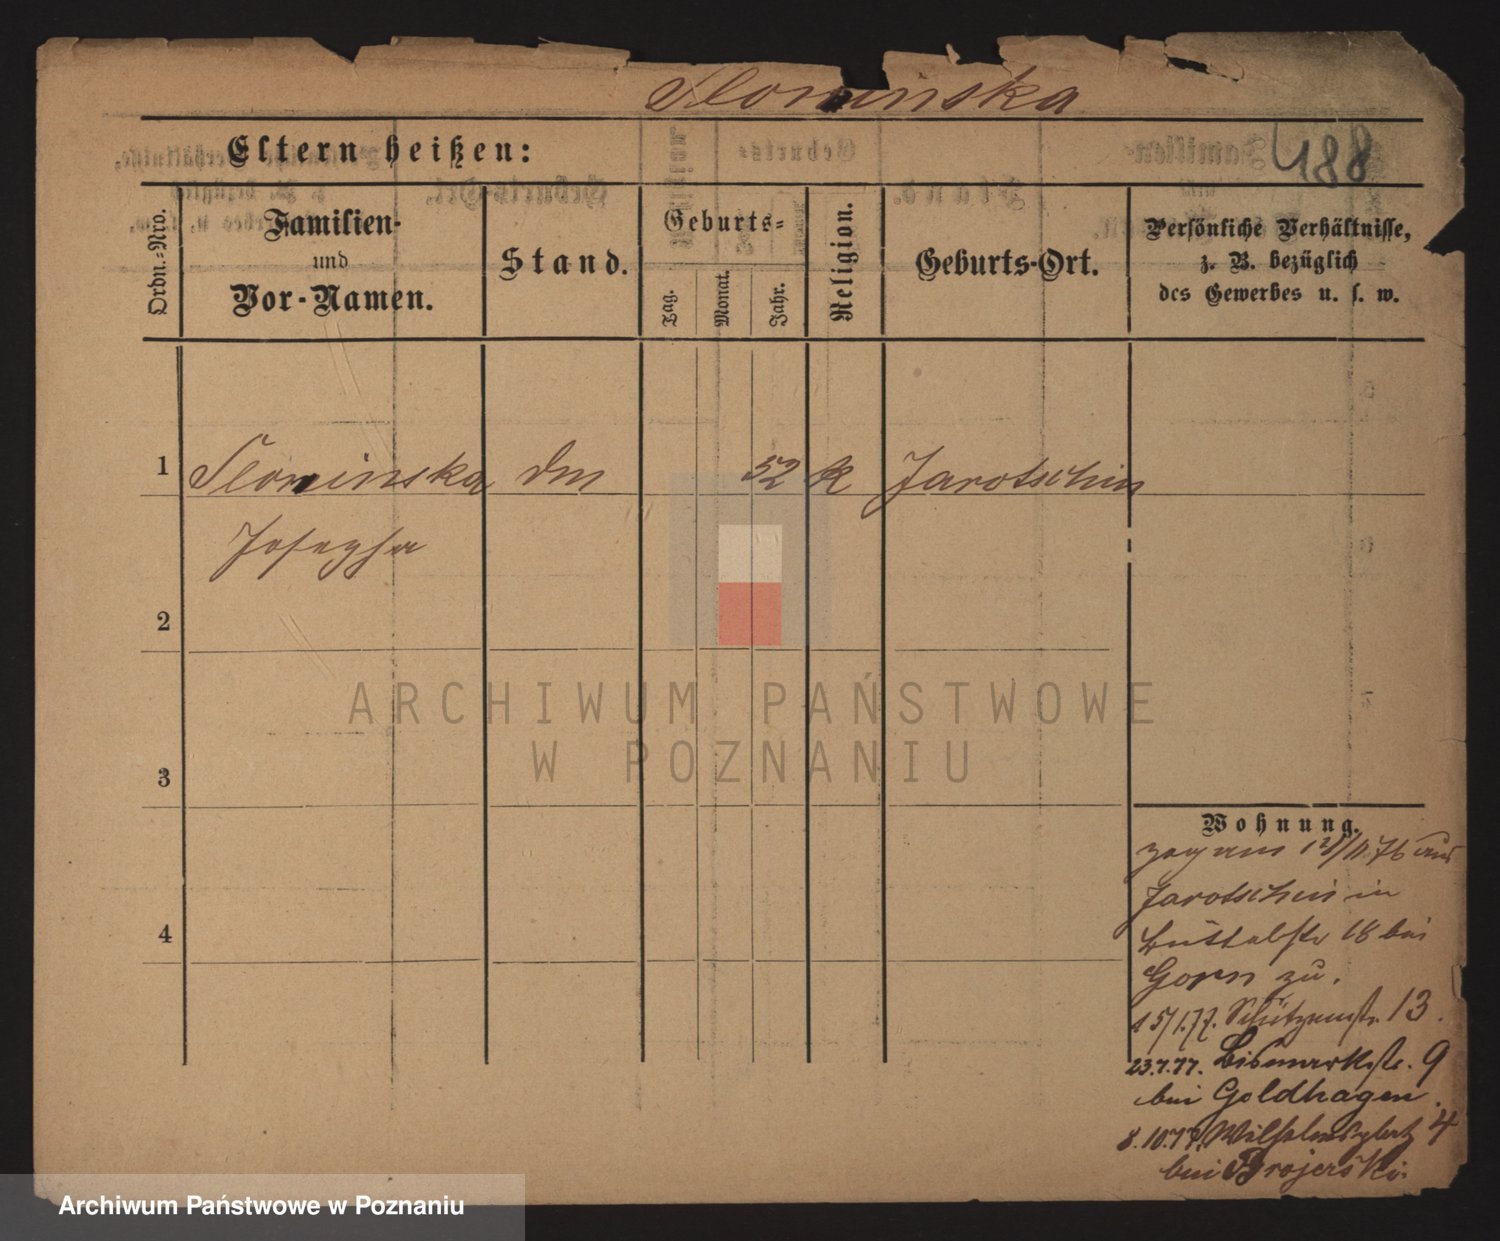 Slominska
488
Eltern heißen:
Ordn.-Nro.
Familien-
und
Vor-Namen.
Stand.
Geburts-
Tag.
Monat.
Jahr.
Religion.
Geburts-Ort.
Persönliche Verhältnisse,
z. B. bezüglich
des Gewerbes u. s. w.
1 Slominska 52 k Jarotschin
Josepha
2
3
4
Wohnung.
zog am 12/11.76 aus
Jarotschin in
Büttelstr 18 bei
Gorn zu.
15/1.77. Schützenstr. 13.
23.7.77. Bismarkstr. 9
bei Goldhagen.
8.10.77. Wilhelmsplatz 4
bei Brojerski.
ARCHIWUM PAŃSTWOWE
W POZNANIU
Archiwum Państwowe w Poznaniu